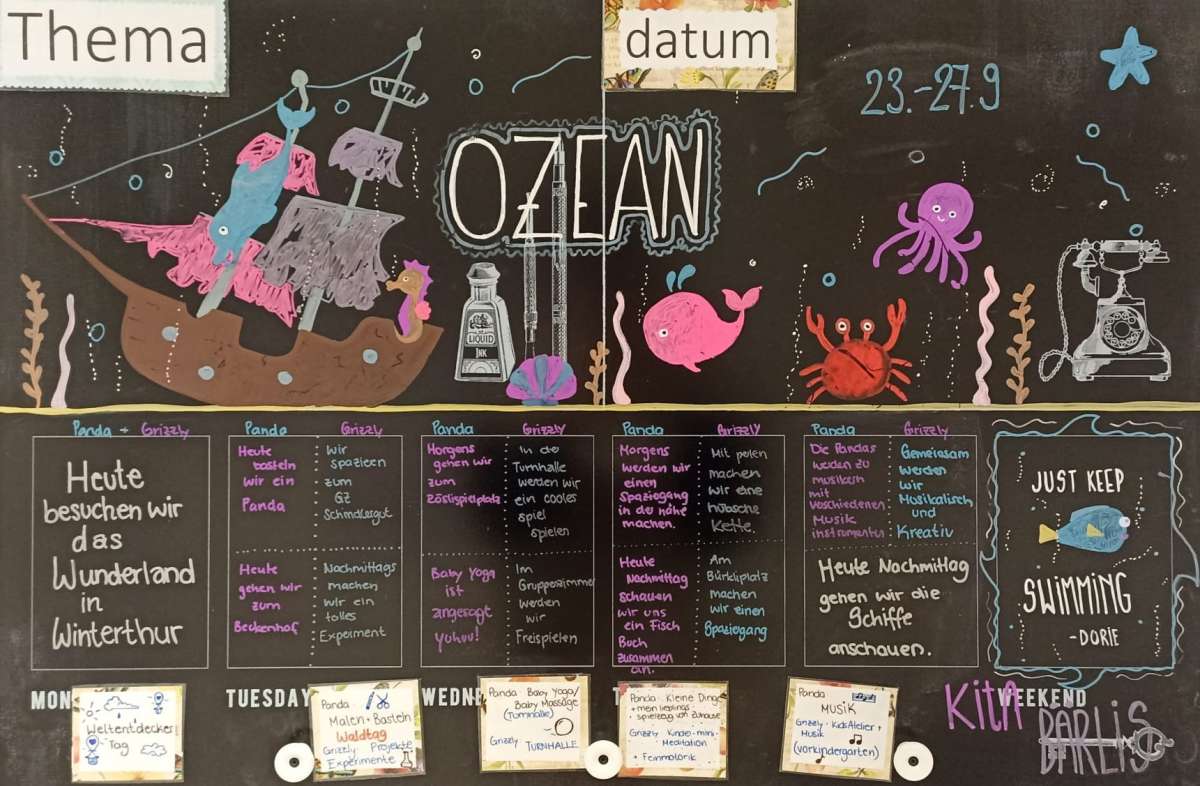 Thema
datum
23.-27.9
OZEAN
LIQUID
INK
Panda + Grizzly
Heute
besuchen wir
das
Wunderland
in
Winterthur
Panda
Heute
basteln
wir ein
Panda
Grizzly
Wir
spazieren
zum
GZ
Schindlergut
Heute
gehen wir
zum
Beckenhof
Nachmittags
machen
wir ein
tolles
Experiment
Panda
Morgens
gehen wir
zum
Zöslispielplatz
Grizzly
In de
Turnhalle
werden wir
ein cooles
spiel
spielen
Baby Yoga
ist
angesagt
yuhuu!
Im
Gruppezimmer
werden
wir
Freispielen
Panda
Morgens
werden wir
einen
Spaziegang
in de nähe
machen.
Grizzly
Mit perlen
machen
wir eine
hübsche
Kette.
Heute
Nachmittag
schauen
wir uns
ein Fisch
Buch
zusammen
an.
Am
Bürkliplatz
machen
wir einen
Spaziegang
Panda
Die Pandas
werden zu
musikern
mit
verschiedenen
Musik
instrumenten
Grizzly
Gemeinsam
werden
wir
Musikalisch
und
Kreativ
Heute Nachmittag
gehen wir die
Schiffe
anschauen.
JUST KEEP
SWIMMING
-DORIE
MON
TUESDAY
WEDNE
T
WEEKEND
Weltentdecker
Tag
Panda
Malen • Basteln
Waldtag
Grizzly Projekte
Experimente
Panda • Baby Yoga/
Baby Massage
(Turnhalle)
Grizzly TURNHALLE
Panda • Kleine Dinge
• mein lieblings
• spielzeug von Zuhause
Grizzly Kinder-mini-
Meditation
+ Feinmotorik
Panda
MUSIK
Grizzly • KidsAtelier +
Musik
(vorkindergarten)
Kita
BÄRLIS
BÄRLIS